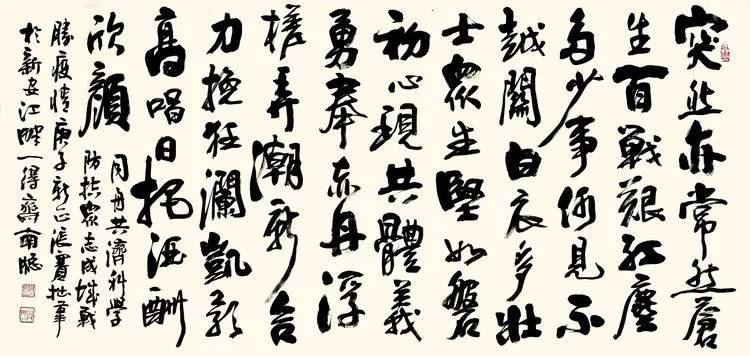 突然亦常然蒼
生百戰艱紅塵
多少事何見不
越關白衣多壯
士眾生堅如磐
初心現共體義
勇奉赤丹浮
槎弄潮新合
力挽狂瀾凱歌
高唱日把酒酬
欣顏
同舟共濟科學
防控眾志成城戰
勝疫情庚子新正拙筆
於新安江畔一得齋南